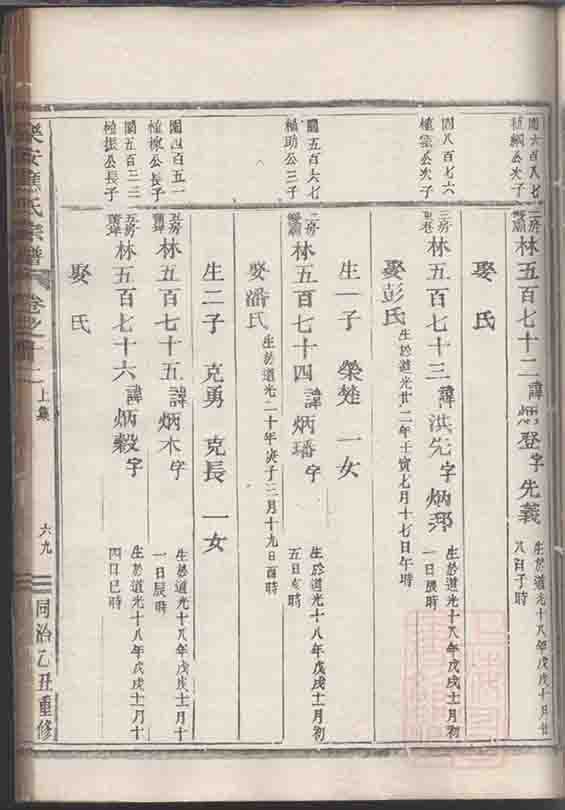 閏六百八七
植綱公次子
三房
林五百七十二 諱炳登 字先義
生於道光十八年戊戌十月廿
八日子時
娶氏
閏八百七六
公次子
三房
林五百七十三 諱洪先 字炳邦
生於道光十八年戊戌十一月初
一日辰時
娶彭氏
生於道光廿二年壬寅七月十七日午時
生一子 榮 一女
閏五百六七
植助公三子
二房
林五百七十四 諱炳璠 字
生於道光十八年戊戌十一月初
五日亥時
娶潘氏
生於道光二十年庚子三月十九日酉時
生二子 克勇 克長 一女
閏四百五一
公長子
五房
林五百七十五 諱炳木 字
生於道光十八年戊戌十一月十
一日辰時
閏五百三二
植振公長子
五房
林五百七十六 諱炳穀 字
生於道光十八年戊戌十一月十
四日巳時
娶氏
樂安 氏宗譜 卷之十二 上集 六九 同治乙丑重修